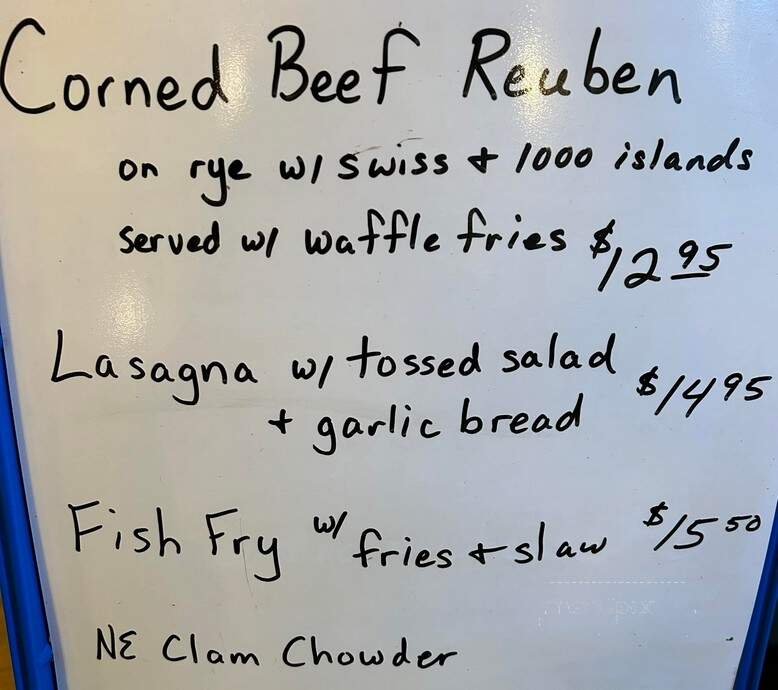 Corned Beef Reuben
on rye w/ swiss + 1000 islands
served w/ waffle fries $12.95
Lasagna w/ tossed salad $14.95
+ garlic bread
Fish Fry w/ fries + slaw $15.50
NE Clam Chowder